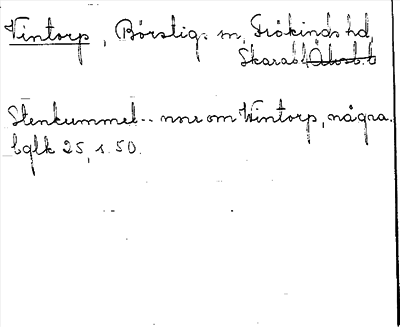 Vintorp, Börstigs sn, Frökinds hd,
Skarabl. Älvsb. l
Stenkummel.. norr om Vintorp, några.
Eglk 25, s. 50.